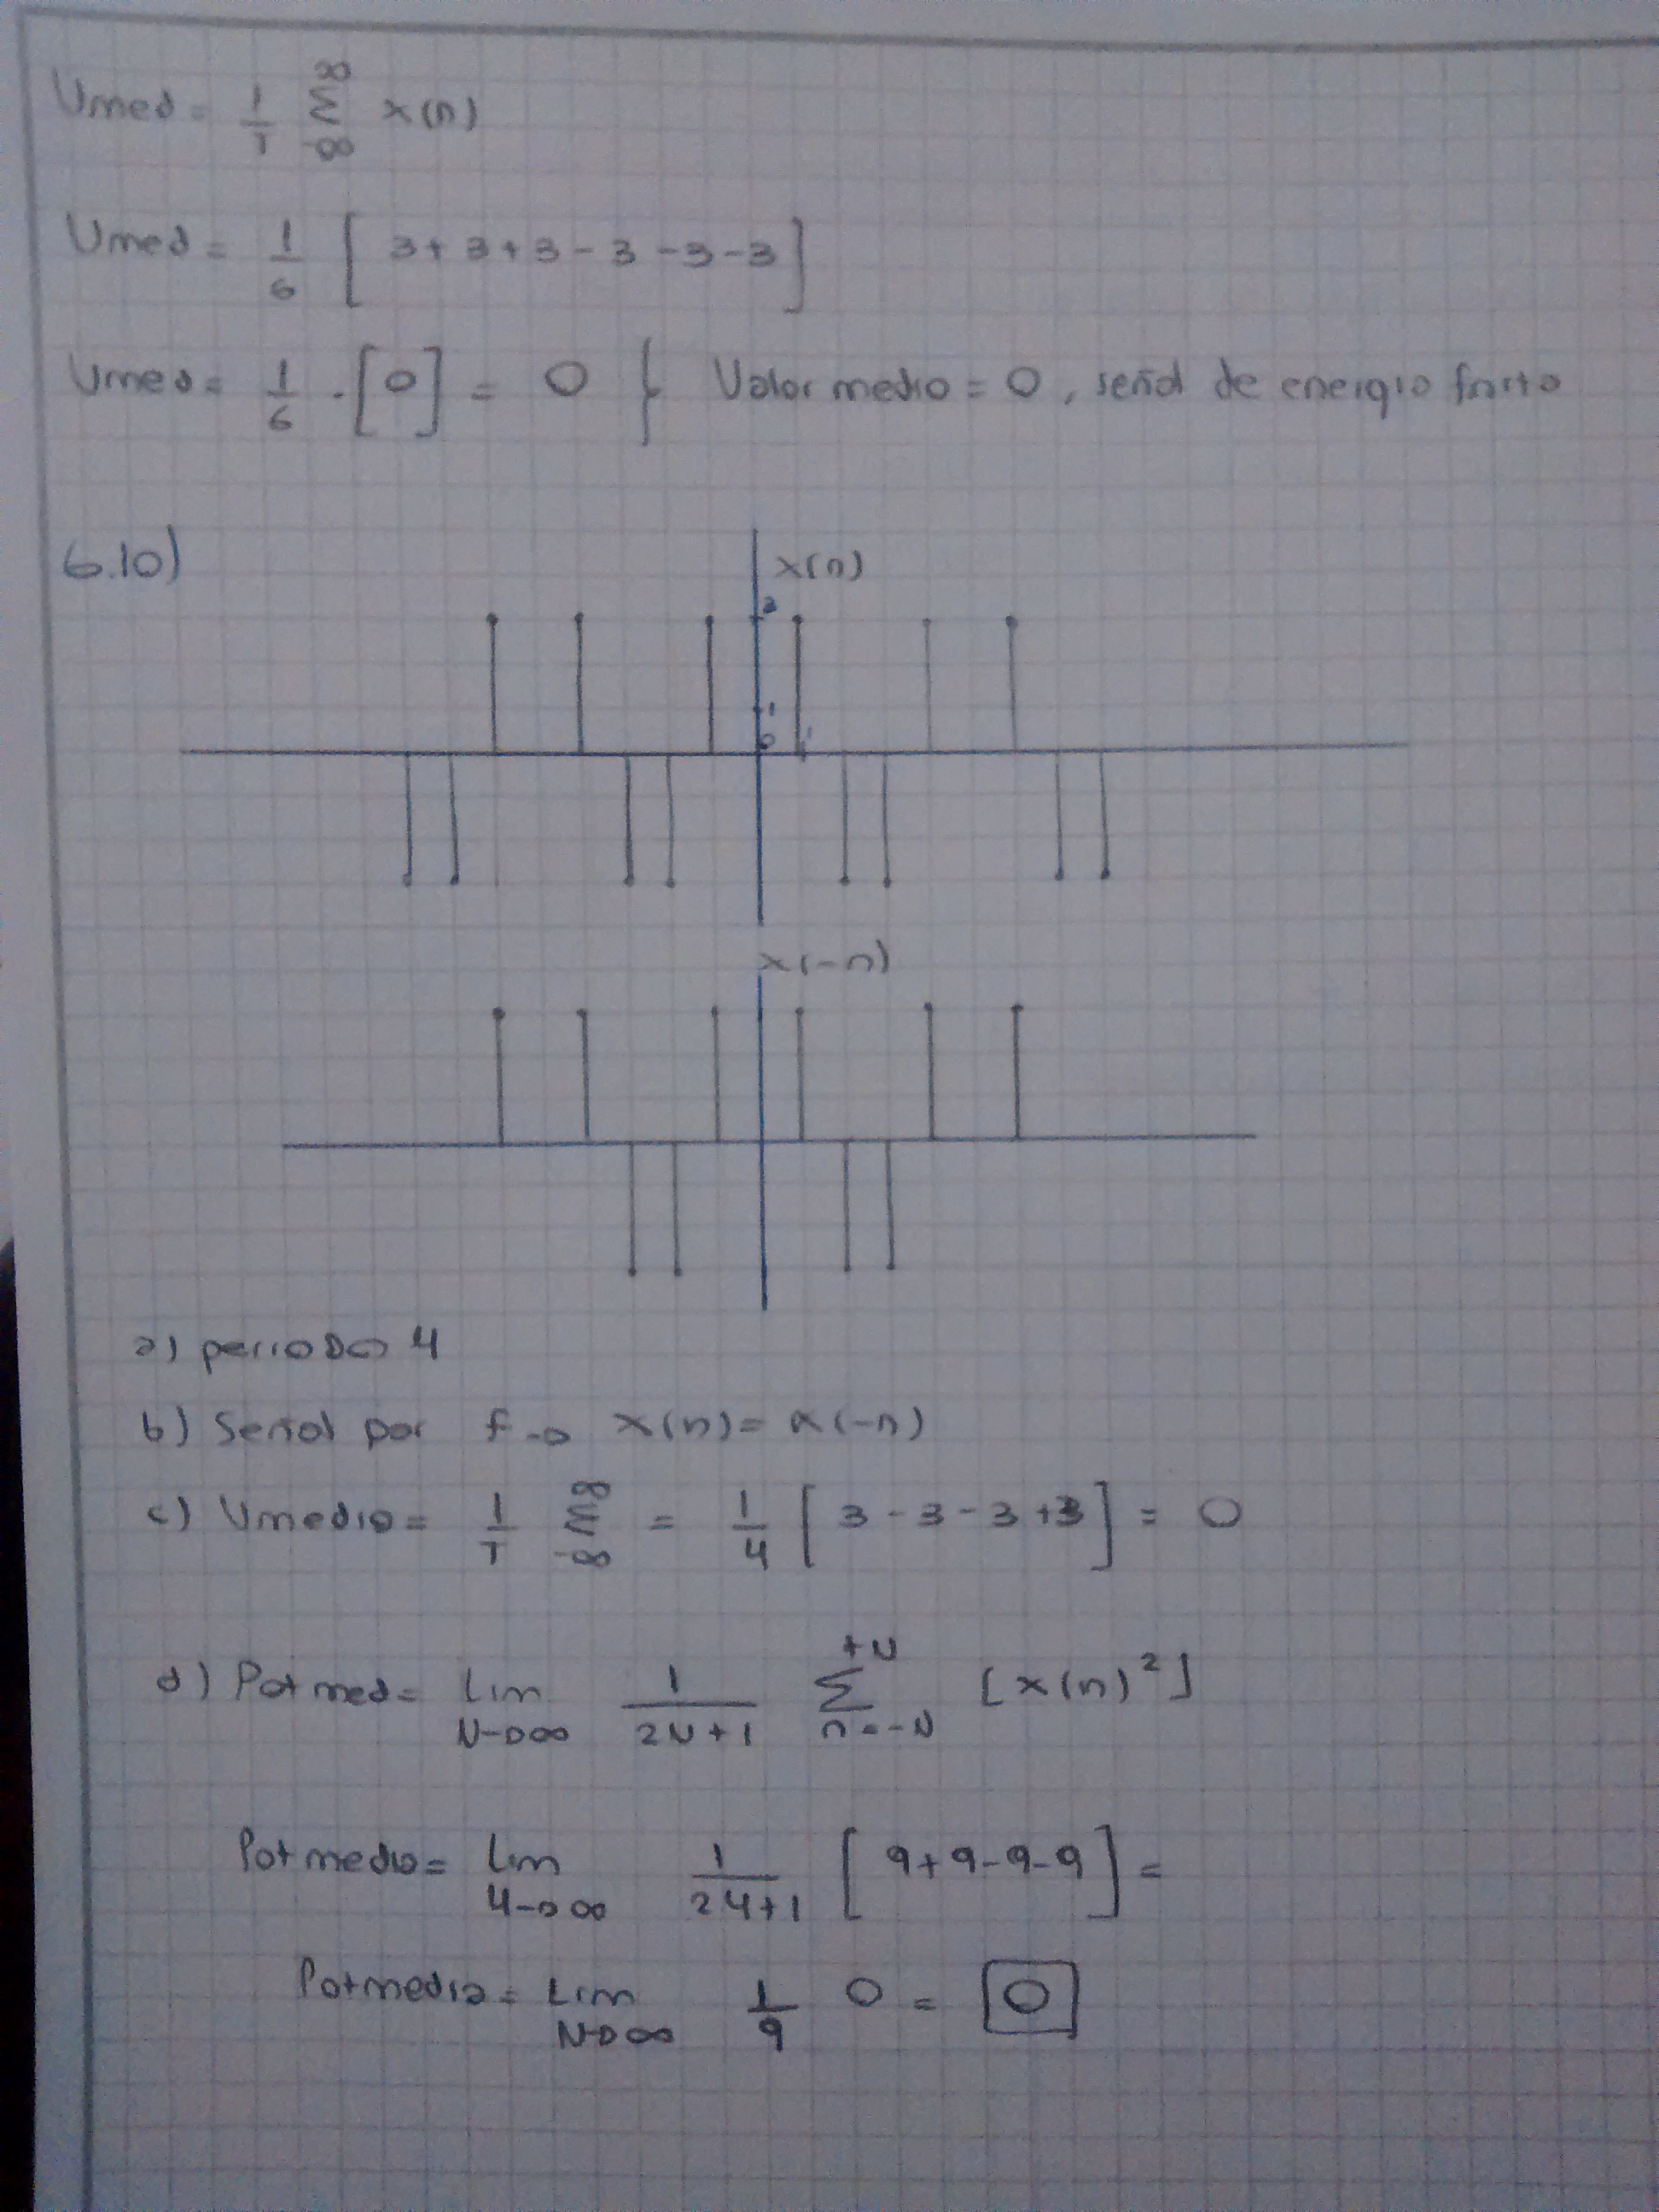 Vmed = 1/T ∞ Σ -∞ x(n)
Vmed = 1/6 [ 3+3+3-3-3-3 ]
Vmed = 1/6 . [0] = 0 } Valor medio = 0, señal de energia finita
6.10)
x(n)
3
1
0 1
x(-n)
a) periodo 4
b) Señal par f→ x(n) = x(-n)
c) Vmedio = 1/T ∞ Σ -∞ = 1/4 [ 3-3-3+3 ] = 0
d) Pot med = Lim N→∞ 1/2N+1 +N Σ n=-N [x(n)²]
Pot media = Lim 4→∞ 1/24+1 [ 9+9-9-9 ] =
Pot media = Lim N→∞ 1/9 0 = 0